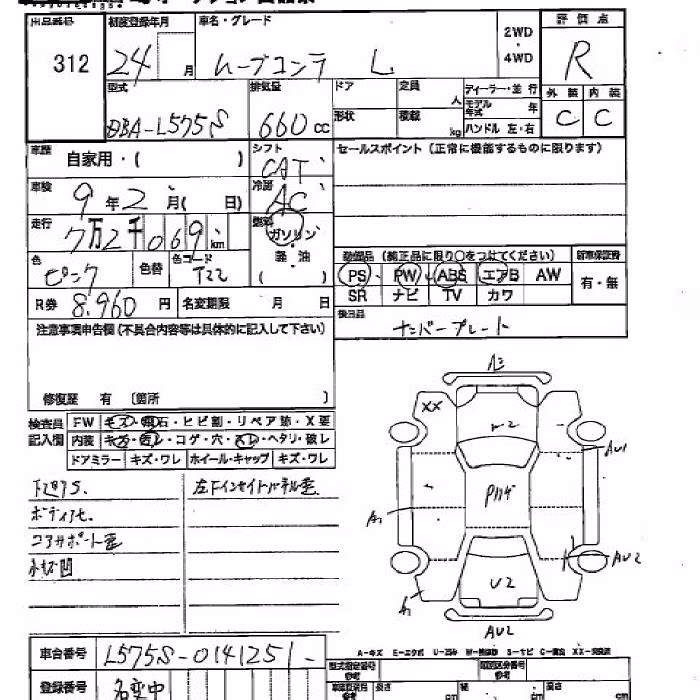 出品番号 初度登録年月 車名・グレード 2WD・4WD 評価点
312 24 月 ムーブコンテ L R
型式 排気量 ドア 定員 人 ディーラー・並 行 外装 内装
DBA-L575S 660 cc 形状 積載 kg モデル年式 年 ハンドル 左・右 C C
車歴 自家用・( ) シフト CAT セールスポイント (正常に機能するものに限ります)
車検 9年2月( 日) 冷房 AC
走行 7万2千069km 燃料 ガソリン・軽油( )
色 ピンク 色替 色コード T22
装備品 (純正品に限り○をつけてください) 新車保証書
PS PW ABS エアB AW 有・無
SR ナビ TV カワ
R券 8,960円 名変期限 月 日
後日品 ナンバープレート
注意事項申告欄 (不具合内容等は具体的に記入して下さい)
修復歴 有 〔箇所 〕
検査員記入欄 FW キズ・飛石・ヒビ割・リペア跡・X要
内装 キズ・汚レ・コゲ・穴・スレ・ヘタリ・破レ
ドアミラー キズ・ワレ ホイール・キャップ キズ・ワレ
下廻りS. 左下インサイドパネル歪.
コアサポート歪
A3
XX
U2
AU1
A1
AU2
U2
AU2
A-キズ E-エクボ U-凹ミ
車台番号 L575S-0141251
登録番号 名変中
型式指定番号 類別区分番号
長さ 幅 高さ
cm cm cm